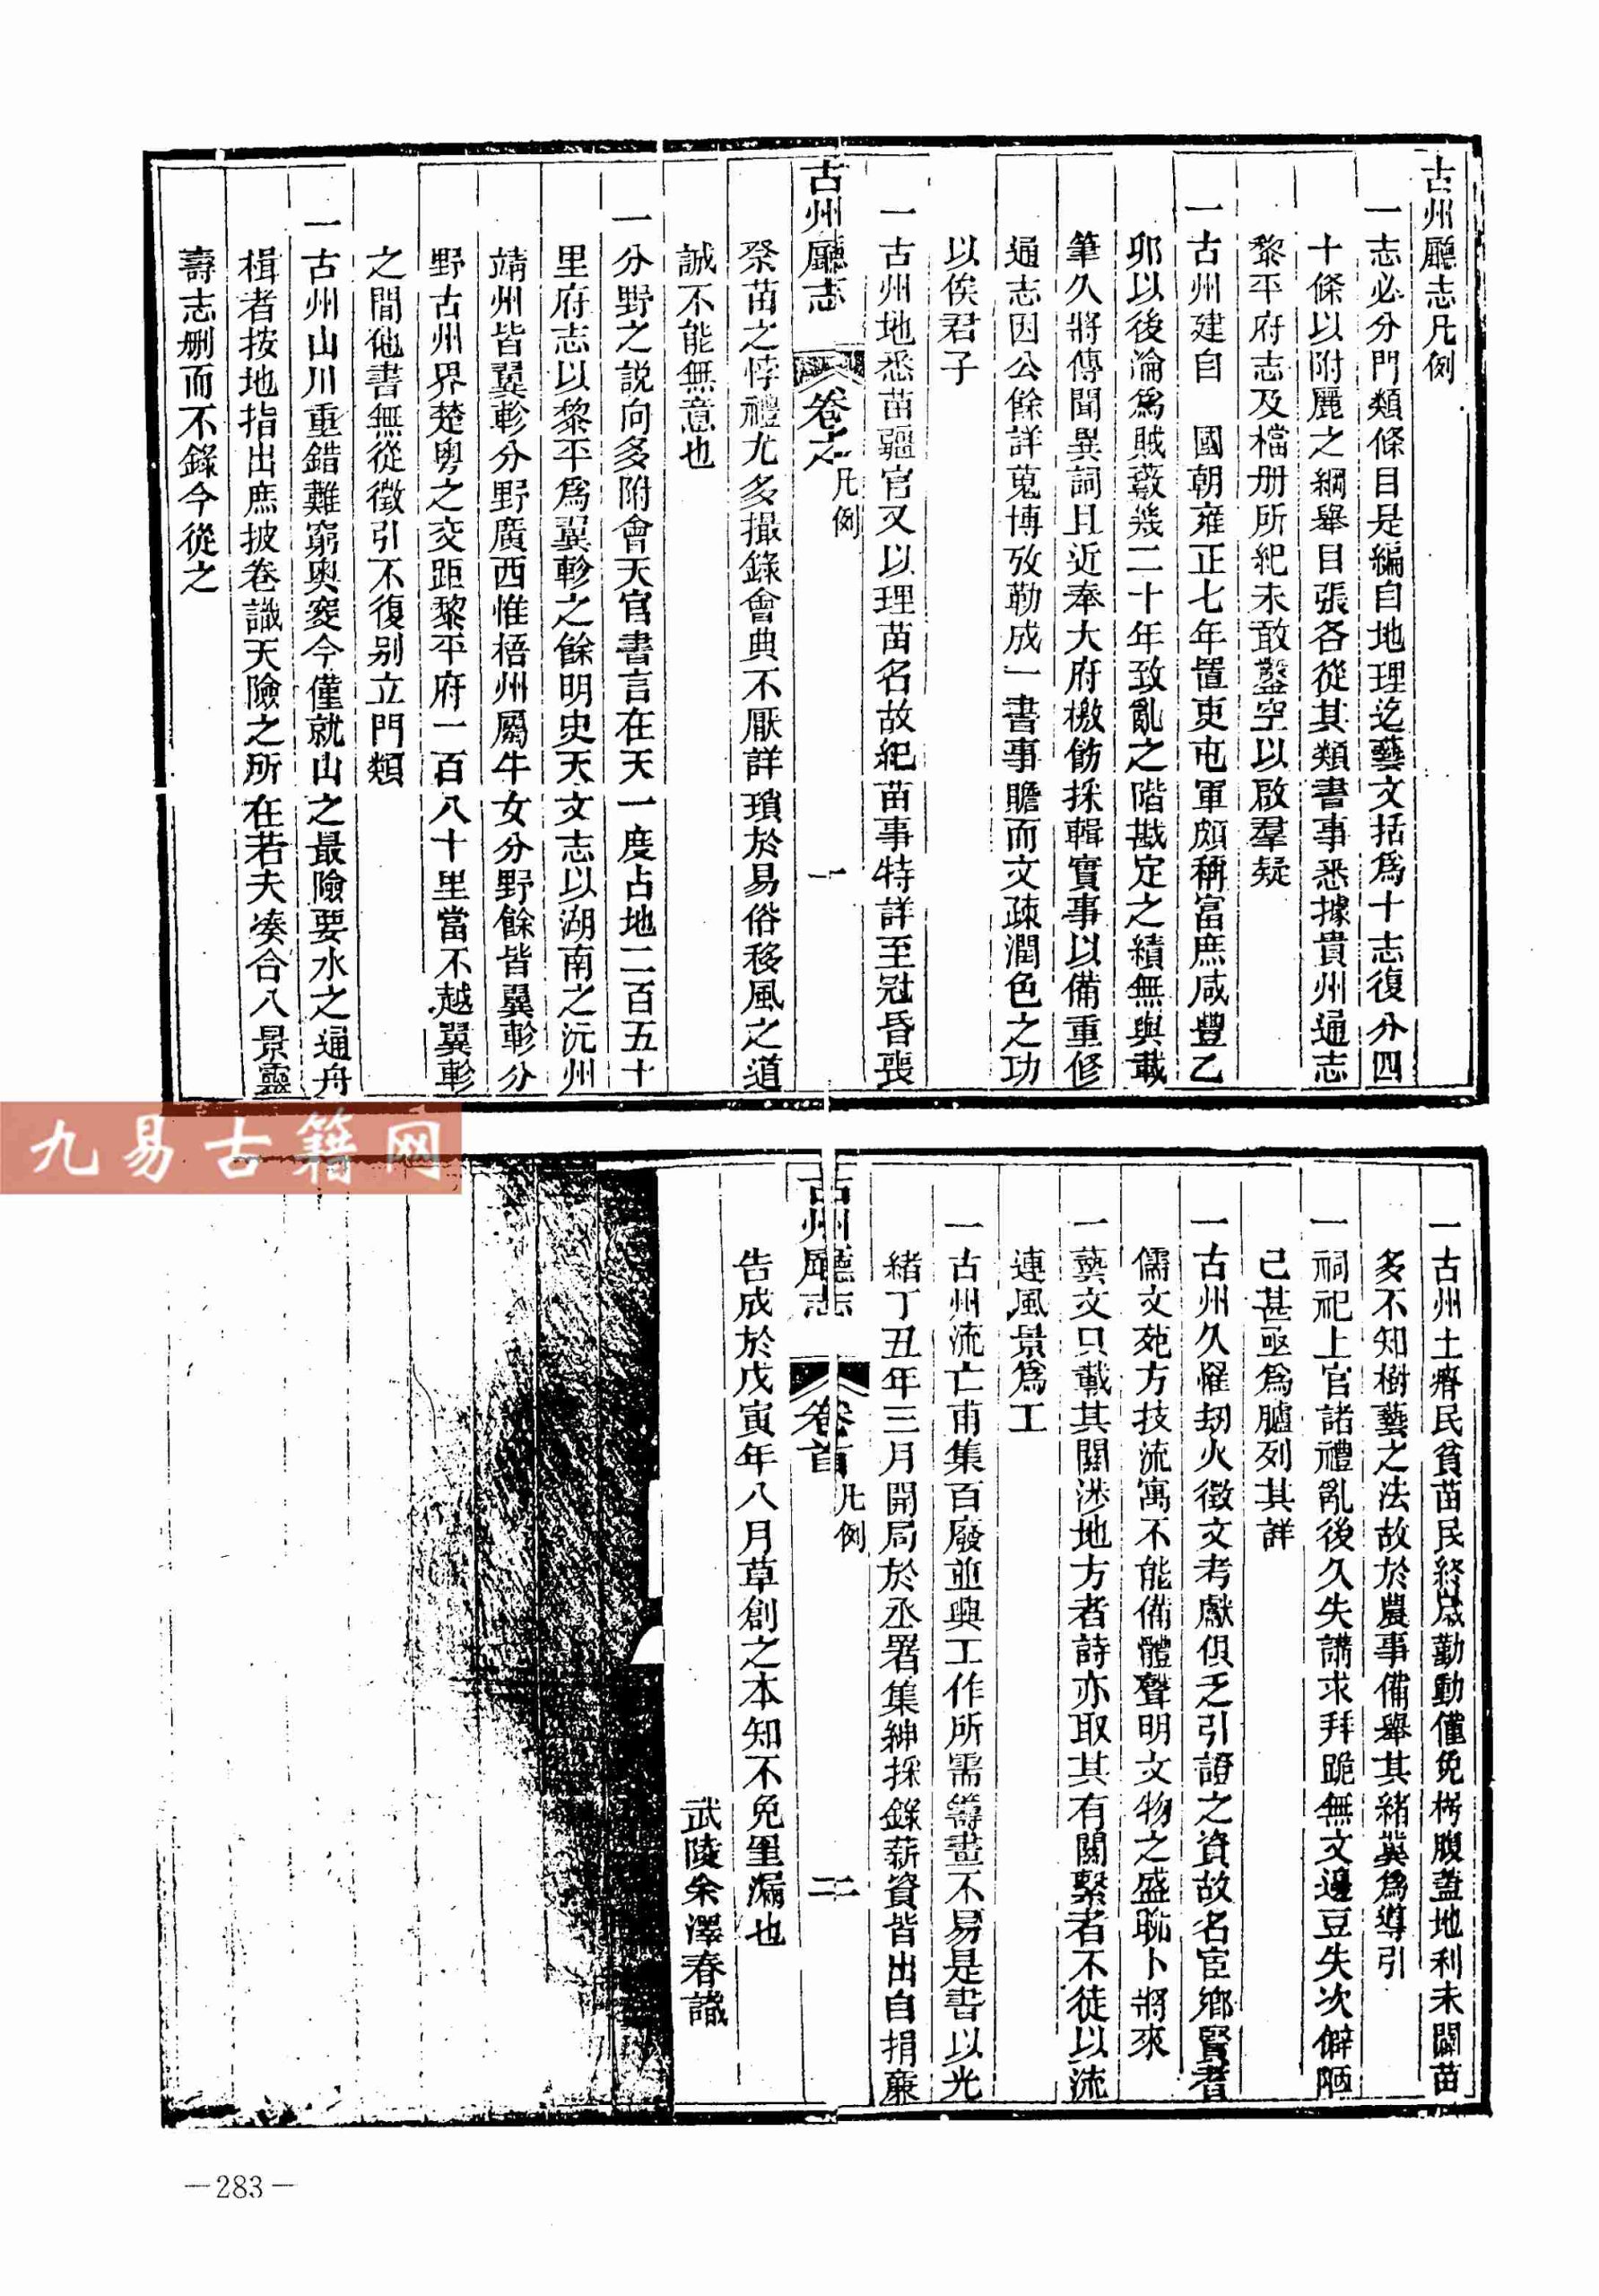 古州廳志凡例
一志必分門類條目是編自地理迄藝文括爲十志復分四
十條以附麗之綱舉目張各從其類書事悉據貴州通志
黎平府志及檔册所紀未敢鑿空以啟羣疑
一古州建自　國朝雍正七年置吏屯軍頗稱富庶咸豐乙
卯以後淪爲賊藪幾二十年致亂之階戡定之績無與載
筆久將傳聞異詞且近奉大府檄飭採輯實事以備重修
通志因公餘詳蒐博攷勒成一書事贍而文疎潤色之功
以俟君子
一古州地悉苗疆官又以理苗名故紀苗事特詳至冠昏喪
古州廳志　卷之　凡例　一
祭苗之悖禮尤多撮錄會典不厭詳瑣於易俗移風之道
誠不能無意也
一分野之説向多附會天官書言在天一度占地二百五十
里府志以黎平爲翼軫之餘明史天文志以湖南之沅州
靖州皆翼軫分野廣西惟梧州屬牛女分野餘皆翼軫分
野古州界楚粤之交距黎平府一百八十里當不越翼軫
之間他書無從徵引不復别立門類
一古州山川重錯難窮奧窔今僅就山之最險要水之通舟
楫者按地指出庶披卷識天險之所在若夫湊合八景靈
壽志刪而不錄今從之
一古州土瘠民貧苗民終歲勤動僅免枵腹蓋地利未闢苗
多不知樹藝之法故於農事備舉其緒冀爲導引
一祠祀上官諸禮亂後久失講求拜跪無文邊豆失次僻陋
已甚亟爲臚列其詳
一古州久罹刼火徵文考獻俱乏引證之資故名宦鄉賢者
儒文苑方技流寓不能備體聲明文物之盛眺卜將來
一藝文只載其關涉地方者詩亦取其有關繫者不徒以流
連風景爲工
一古州流亡甫集百廢並興工作所需籌畫不易是書以光
緒丁丑年三月開局於丞署集紳採錄薪資皆出自捐廉
古州廳志　卷首　凡例　二
告成於戊寅年八月草創之本知不免里漏也
武陵余澤春識
九易古籍网
—283—